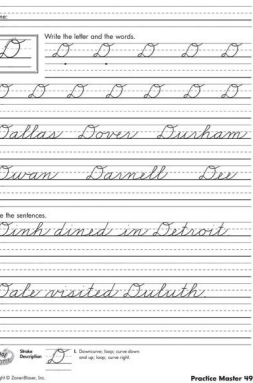 me:
Write the letter and the words.
D D D D D D D
D D D D D D D
Dallas Dover Durham
Dwan Darnell Dee
e the sentences.
Dinh dined in Detroit.
Dale visited Duluth.
Stroke Description
1. Downcurve; loop; curve down and up; loop, curve right.
ght © Zaner-Bloser, Inc.
Practice Master 49